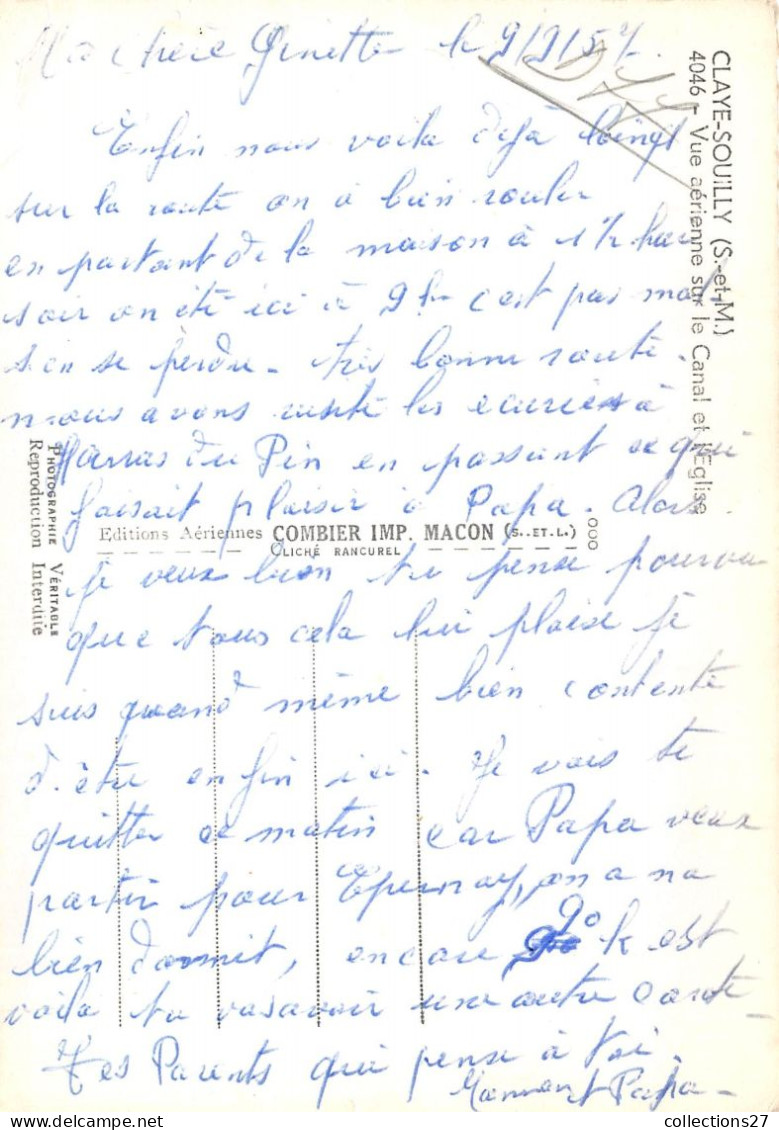 Ma chère Ginette le 9/9/57.
Enfin nous voila dejà loing
sur la route on à bien rouler
en partant de la maison à 1½
soir on été ici à 9h c'est pas mal
s'en se perdu. très bonne route.
nous avons visité les ecuries à
Harras du Pin en passant ce qui
faisait plaisir à Papa. Alors
Je veux bien tu pense pourvu
que tous cela lui plaise je
suis quand même bien contente
d'être enfin ici. Je vais te
quitter ce matin car Papa veux
partir pour Epernay, on a
bien dormit, encore 90 k est
voila tu vas avoir une autre carte
Tes Parents qui pense à toi
Maman et Papa
CLAYE-SOUILLY (S.-et-M.)
4046 - Vue aérienne sur le Canal et l'Eglise
PHOTOGRAPHIE VÉRITABLE
Reproduction Interdite
Editions Aériennes COMBIER IMP. MACON (S.-ET-L.)
CLICHÉ RANCUREL
collections27